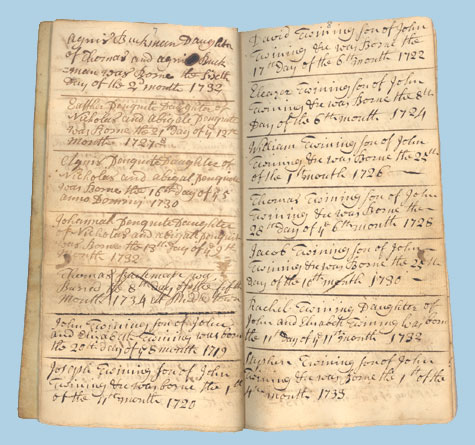 Agnis Buckman Daughter
of Thomas and agnis Buck
man was Borne the sixth
Day of the 2d month 1732
Esther Penquite Daughter of
Nicholas and Abigale Penquite
was Borne the 21st Day of ye 12th
month 1727
Agnis Penquite Daughter of
Nicholas and Abigal Penquite
was Borne the 16th Day of ye 5
anno Dominy 1730
Johannah Penquite Daughter
of Nicholas and abigal penquite
was Borne the 13th Day of ye
month 1732
Thomas was
Buried the 8th Day of the fifth
Month 1734 at
John Twining son of John
and Elizabeth Twining was born
the 20st Day of ye 8 month 1719
Joseph Twining son of John
Twining &c was borne the 1st
of the 11th month 1720
David Twining son of John
Twining &c was Borne the
17th Day of the 6th month 1722
Eleazer Twining son of John
Twining &c was Borne the 8th
Day of the 6th month 1724
William Twining son of John
Twining &c was Borne the 25th
of the 1st month 1726
Thomas Twining son of John
Twining &c was Borne the
28th Day of ye 6th month 1728
Jacob Twining son of John
Twining &c was Borne the 25th
Day of the 10th month 1730
Rachel Twining Daughter of
John and Elizabeth Twining was born
the 11th Day of ye 11th month 1732
Stephen Twining son of John
Twining &c was Borne the 1st of the
4th month 1733